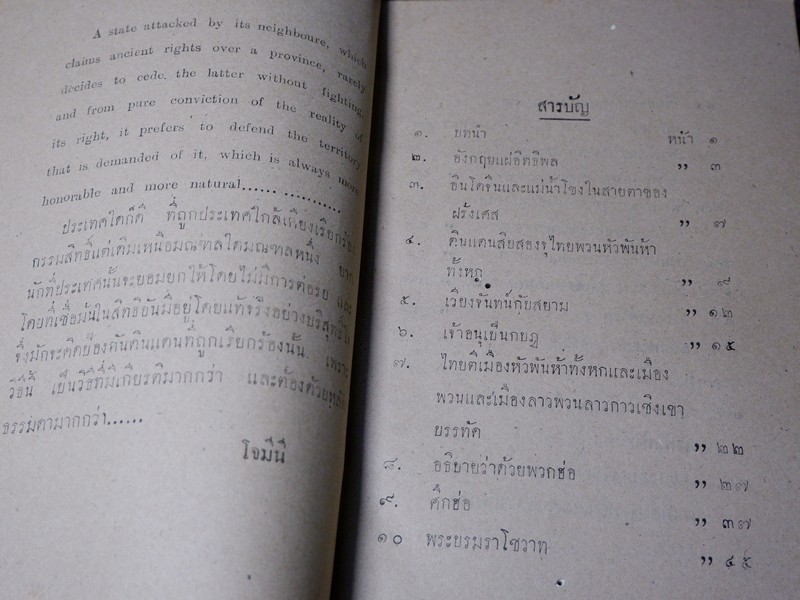 A state attacked by its neighboure, which
claims ancient rights over a province, rarely
decides to cede the latter without fighting,
and from pure conviction of the reality of
its right, it prefers to defend the territory
that is demanded of it, which is always more
honorable and more natural......
ประเทศใดก็ดี ที่ถูกประเทศใกล้เคียงเรียกร้อง
กรรมสิทธิ์แต่เดิมเหนือมณฑลใดมณฑลหนึ่ง ยาก
นักที่ประเทศนั้นจะยอมยกให้โดยไม่มีการต่อรอง และ
โดยที่เชื่อมั่นในสิทธิอันมีอยู่โดยแท้จริงอย่างบริสุทธิ์ใจ
จึงมักจะคิดป้องกันดินแดนที่ถูกเรียกร้องนั้น เพราะ
วิธีนี้ เป็นวิธีที่มีเกียรติมากกว่า และต้องด้วย
ธรรมดามากกว่า......
โจมีนี
สารบัญ
๑. บทนำ หน้า ๑
๒. อังกฤษแผ่อิทธิพล ,, ๓
๓. อินโดจีนและแม่น้ำโขงในสายตาของ
ฝรั่งเศส ,, ๗
๔. ดินแดนสิบสองจุไทยพวนหัวพันห้า
ทั้งหก ,, ๙
๕. เวียงจันทน์กับสยาม ,, ๑๒
๖. เจ้าอนุเป็นกบฏ ,, ๑๕
๗. ไทยตีเมืองหัวพันห้าทั้งหกและเมือง
พวนและเมืองลาวพวนลาวกาวเชิงเขา
บรรทัด ,, ๒๒
๘. อธิบายว่าด้วยพวกฮ่อ ,, ๒๗
๙. ศึกฮ่อ ,, ๓๗
๑๐ พระบรมราโชวาท ,, ๔๕